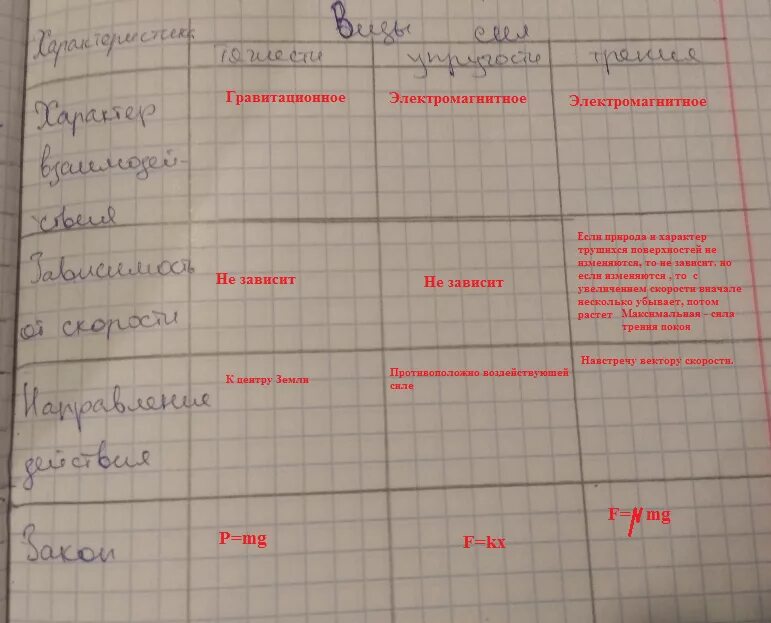 Характеристика Виды сил
тяжести упругости трения
Характер
взаимодей-
ствия
Гравитационное
Электромагнитное
Электромагнитное
Зависимость
от скорости
Не зависит
Не зависит
Если природа и характер
трущихся поверхностей не
изменяются, то не зависит. но
если изменяются , то с
увеличением скорости вначале
несколько убывает, потом
растет Максимальная - сила
трения покоя
Направление
действия
К центру Земли
Противоположно воздействующей
силе
Навстречу вектору скорости.
Закон
P=mg
F=kx
F=μ mg